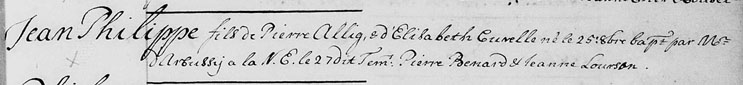 Jean Philippe fils de Pierre Allig, & d'Elisabeth Cuvelle né le 25: 8bre bap.ᵗ par Mʳ
d'Arbussy a la N. E. le 27 dit Tem: Pierre Benard & Jeanne Lourson.